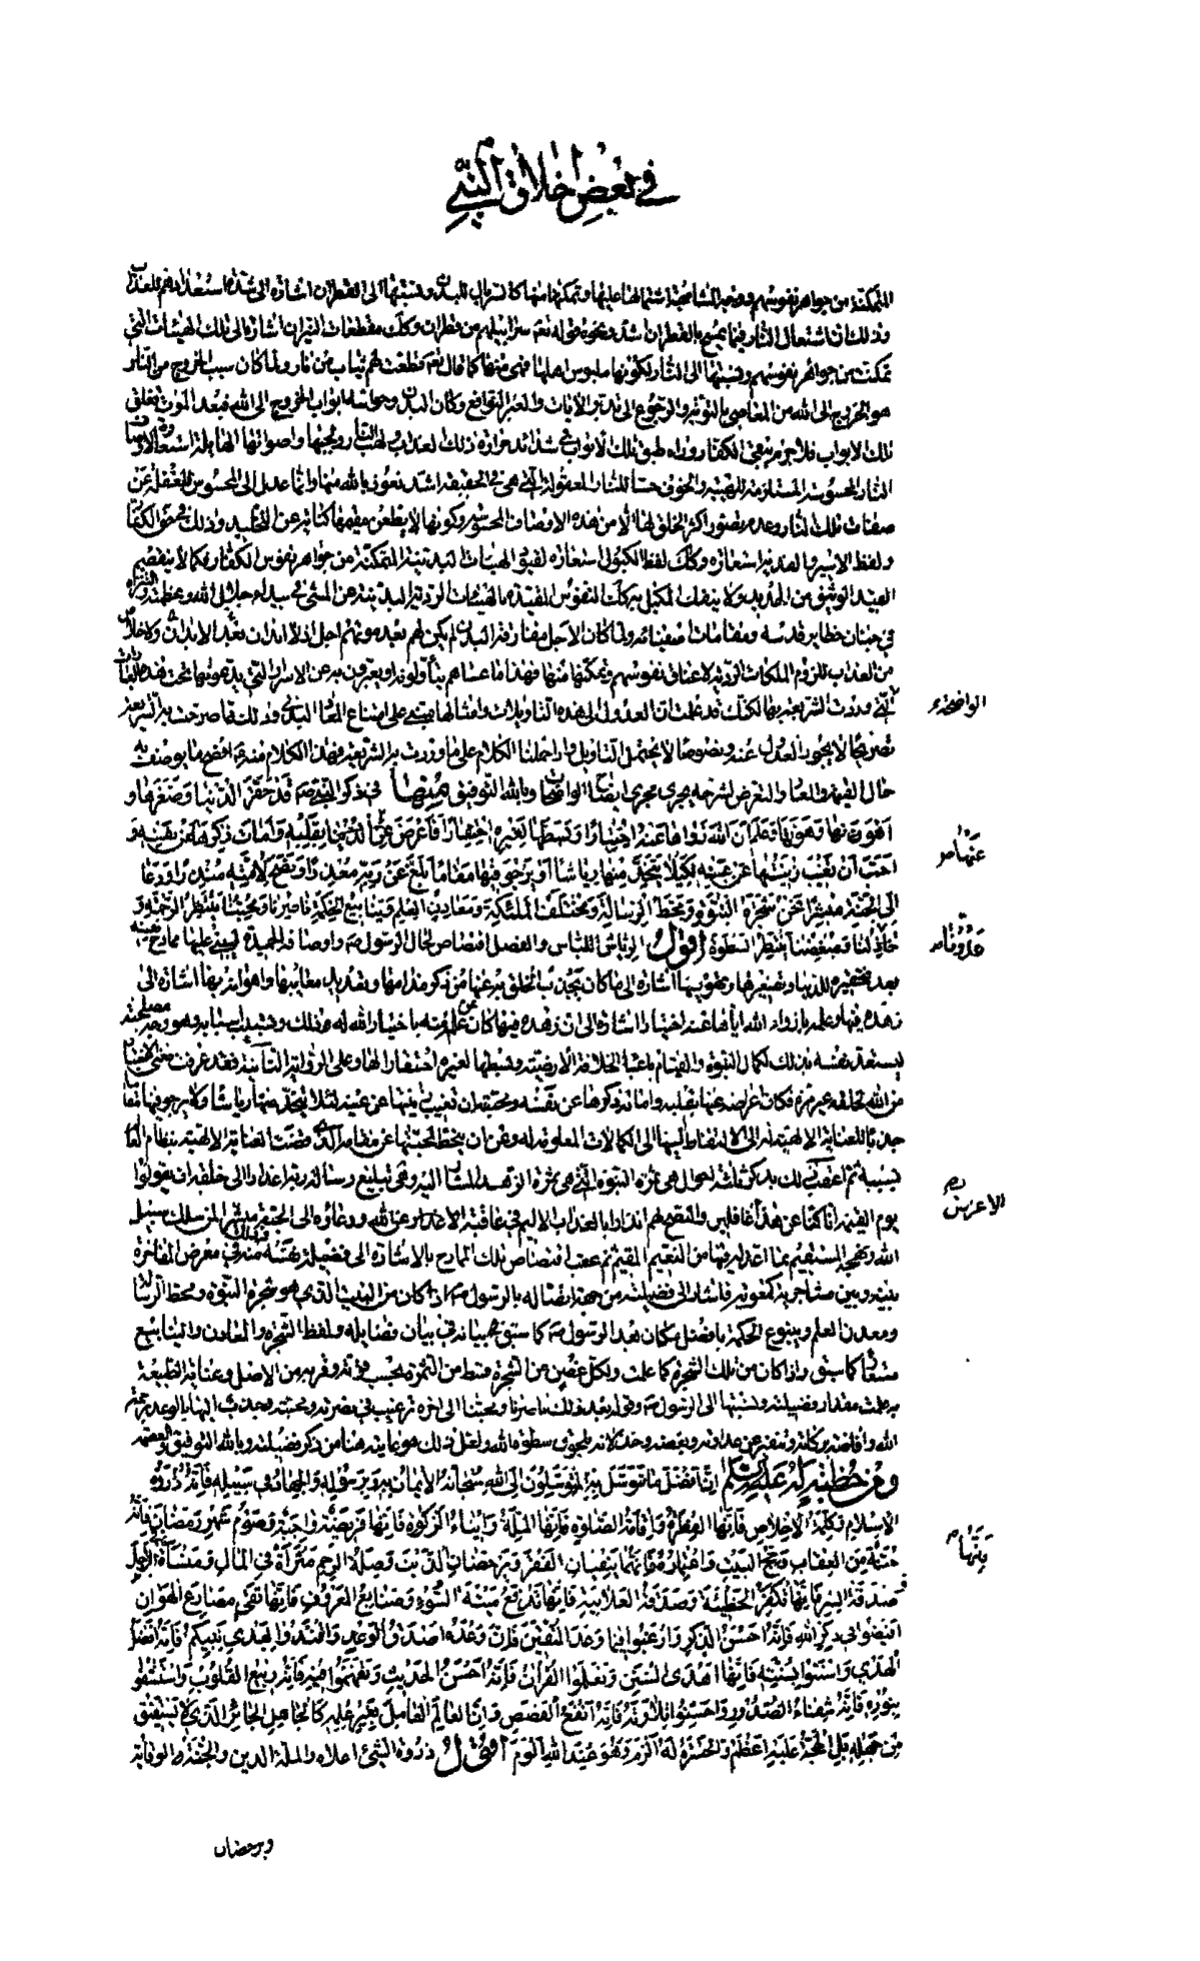 في بعض اخلاق النبي
المتمكنة من جواهر نفوسهم ووجه المشابهة اشتمالها عليها وتمكنها منها كالسربال للبدن ونسبتها الى القطران اشارة الى شدة استعدادهم للعذاب
وذلك ان اشتعال النار فيما يمسح بالقطران اشد ونحوه قوله تعم سرابيلهم من قطران وكك مقطعات النيران اشارة الى تلك الهيئات التي
تمكنت من جواهر نفوسهم ونسبتها الى النار لكونها ملبوس اهلها فهي منها كما قال تعم قطعت لهم ثياب من نار ولما كان سبب الخروج من النار
هو الخروج الى الله من المعاصي بالتوبة والرجوع الى تدبر الآيات والعبر النوافع وكان البدن وحواسه ابواب الخروج الى الله فبعد الموت تغلق
تلك الابواب فلا جرم يبقى الكفار وراء طبق تلك الابواب في شدائد حرارة ذلك العذاب ولهب النار ولجبها واصواتها الهايلة استعارة لاوصاف
النار المحسوسة المستلزمة للهيبة والخوف حسا للنار المعقولة التي هي في الحقيقة اشد نعوذ بالله منها وانما عدل الى المحسوس للغفلة عن
صفات تلك النار وعدم تصور اكثر الخلق لها الا من هذه الاوصاف المحسوسة وكونها لا يظعن مقيمها كناية عن التخليد وذلك في حق الكفار
ولفظ الاسير والفدية استعارة وكك لفظ الكبول استعارة لقيود الهيئات البدنية المتمكنة من جواهر نفوس الكفار فكما لا ينفصم
القيد الوثيق من الحديد ولا ينفك المكبل به كك النفوس المقيدة بالهيئات الردية البدنية عن المشي في بيداء جلال الله وعظمته والتنزه
في جنان حظاير قدسه ومقامات اصفيائه ولما كان الاجل مفارقة البدن لم يكن لهم بعد موتهم اجل اذ لا ابدان بعد الابدان ولا خلاص
من العذاب للزوم الملكات الردية لاعناق نفوسهم وتمكنها منها فهذا ما عساهم يتأولونه او يعبرون به عن الاسرار التي يدعونها تحت هذه العبارات
التي وردت الشريعة بها لكنك قد علمت ان العدول الى هذه التأويلات وامثالها مبني على امتناع المعاد البدني وذلك مما صرحت به الشريعة
تصريحا لا يجوز العدول عنه ونصوصا لا يحتمل التأويل واذا حملنا الكلام على ما وردت به الشريعة فهذا الكلام منه ع افصح ما يوصف به
حال القيمة والمعاد والتعرض لشرحه يجري مجرى ايضاح الواضحات وبالله التوفيق منها في ذكر النبي ص قد حقر الدنيا وصغرها و
اهون بها وهونها وعلم ان الله زواها عنه اختيارا وبسطها لغيره احتقارا فاعرض عن الدنيا بقلبه وامات ذكرها عن نفسه و
احب ان تغيب زينتها عن عينه لكيلا يتخذ منها رياشا او يرجو فيها مقاما بلغ عن ربه معذرا ونصح لامته منذرا ودعا
الى الجنة مبشرا نحن شجرة النبوة ومحط الرسالة ومختلف الملئكة ومعادن العلم وينابيع الحكمة ناصرنا ومحبنا ينتظر الرحمة و
خاذلنا ومبغضنا ينتظر السطوة اقول الرياش اللباس والفصل اقتصاص لحال الرسول ص واوصافه الحميدة ليبني عليها ممادح نفسه
بعد تحقيره للدنيا وتصغيرها وتهوينها اشارة الى ما كان يجذب الخلق به عنها من ذكر مذامها وتعديد معايبها واهوانه بها اشارة الى
زهده فيها وعلمه بازواء الله اياها عنه اختيارا اشارة الى ان زهده فيها كان عن علم منه باختيار الله له ذلك
ليستعد نفسه بذلك لكمال النبوة والقيام باعباء الخلافة الارضية وبسطها لغيره احتقارا لها
من الله لخلقه غير مرة فكان اعراضه عنها بقلبه وامانة ذكرها عن نفسه ومحبته ان تغيب زينتها عن عينه لئلا يتخذ منها رياشا ولا يرجو فيها مقاما
يوم القيمة انا كنا عن هذا غافلين والنصح لهم انذارا بالعذاب الاليم في عاقبة الاعراض عن الله ودعاؤه الى الجنة مبشرا لمن سلك سبيل
الله ونهجه المستقيم بما اعد له فيها من النعيم المقيم ثم عقب اقتصاص تلك الممادح بالاشارة الى فضيلة نفسه وذلك منه في معرض المفاخرة
بينه وبين مشاجريه كمعوية فاشار الى فضيلته من جهة اتصاله بالرسول ص اذ كان من البيت الذي هو شجرة النبوة ومحط الرسالة
ومعدن العلم وينبوع الحكمة بافضل مكان بعد الرسول ص كما سبق بيانه في بيان فضايله ولفظ الشجرة والمعادن والينابيع
مستعار كما سبق واذا كان من تلك الشجرة كما علمت ولكل غصن من الشجرة قسط من الثمرة بحسب قوته وقربه من الاصل وعناية الطبيعة
به علمت مقدار فضيلته ونسبتها الى الرسول ص وقوله بعد ذلك ناصرنا ومحبنا الى اخره ترغيب في نصرته ومحبته وجذب اليها بالوعد برحمة
الله وافاضة بركاته وتنفير عن عداوته وبغضه وخذلانه بلحوق سطوة الله ولعل ذلك هو غايته هنا من ذكر فضيلته وبالله التوفيق والعصمة
ومن خطبة له عليه السلام ان افضل ما توسل به المتوسلون الى الله سبحانه الايمان به وبرسوله والجهاد في سبيله فانه ذروة
الاسلام وكلمة الاخلاص فانها الفطرة واقامة الصلوة فانها الملة وايتاء الزكوة فانها فريضة واجبة وصوم شهر رمضان فانه
جنة من العقاب وحج البيت واعتماره فانهما ينفيان الفقر ويرحضان الذنب وصلة الرحم مثراة في المال ومنساة في الاجل
صدقة السر فانها تكفر الخطيئة وصدقة العلانية فانها تدفع ميتة السوء وصنايع المعروف فانها تقي مصارع الهوان
افيضوا في ذكر الله فانه احسن الذكر وارغبوا فيما وعد المتقين فان وعده اصدق الوعد واقتدوا بهدي نبيكم فانه افضل
الهدي واستنوا بسنته فانها اهدى السنن وتعلموا القران فانه احسن الحديث وتفقهوا فيه فانه ربيع القلوب واستشفوا
بنوره فانه شفاء الصدور واحسنوا تلاوته فانه انفع القصص فان العالم العامل بغير علمه كالجاهل الحائر الذي لا يستفيق
من جهله بل الحجة عليه اعظم والحسرة له الزم وهو عند الله الوم اقول ذروة الشيء اعلاه والملة الدين والجنة الوقاية
الواضح
عنها
الاعراض
ويرحضان